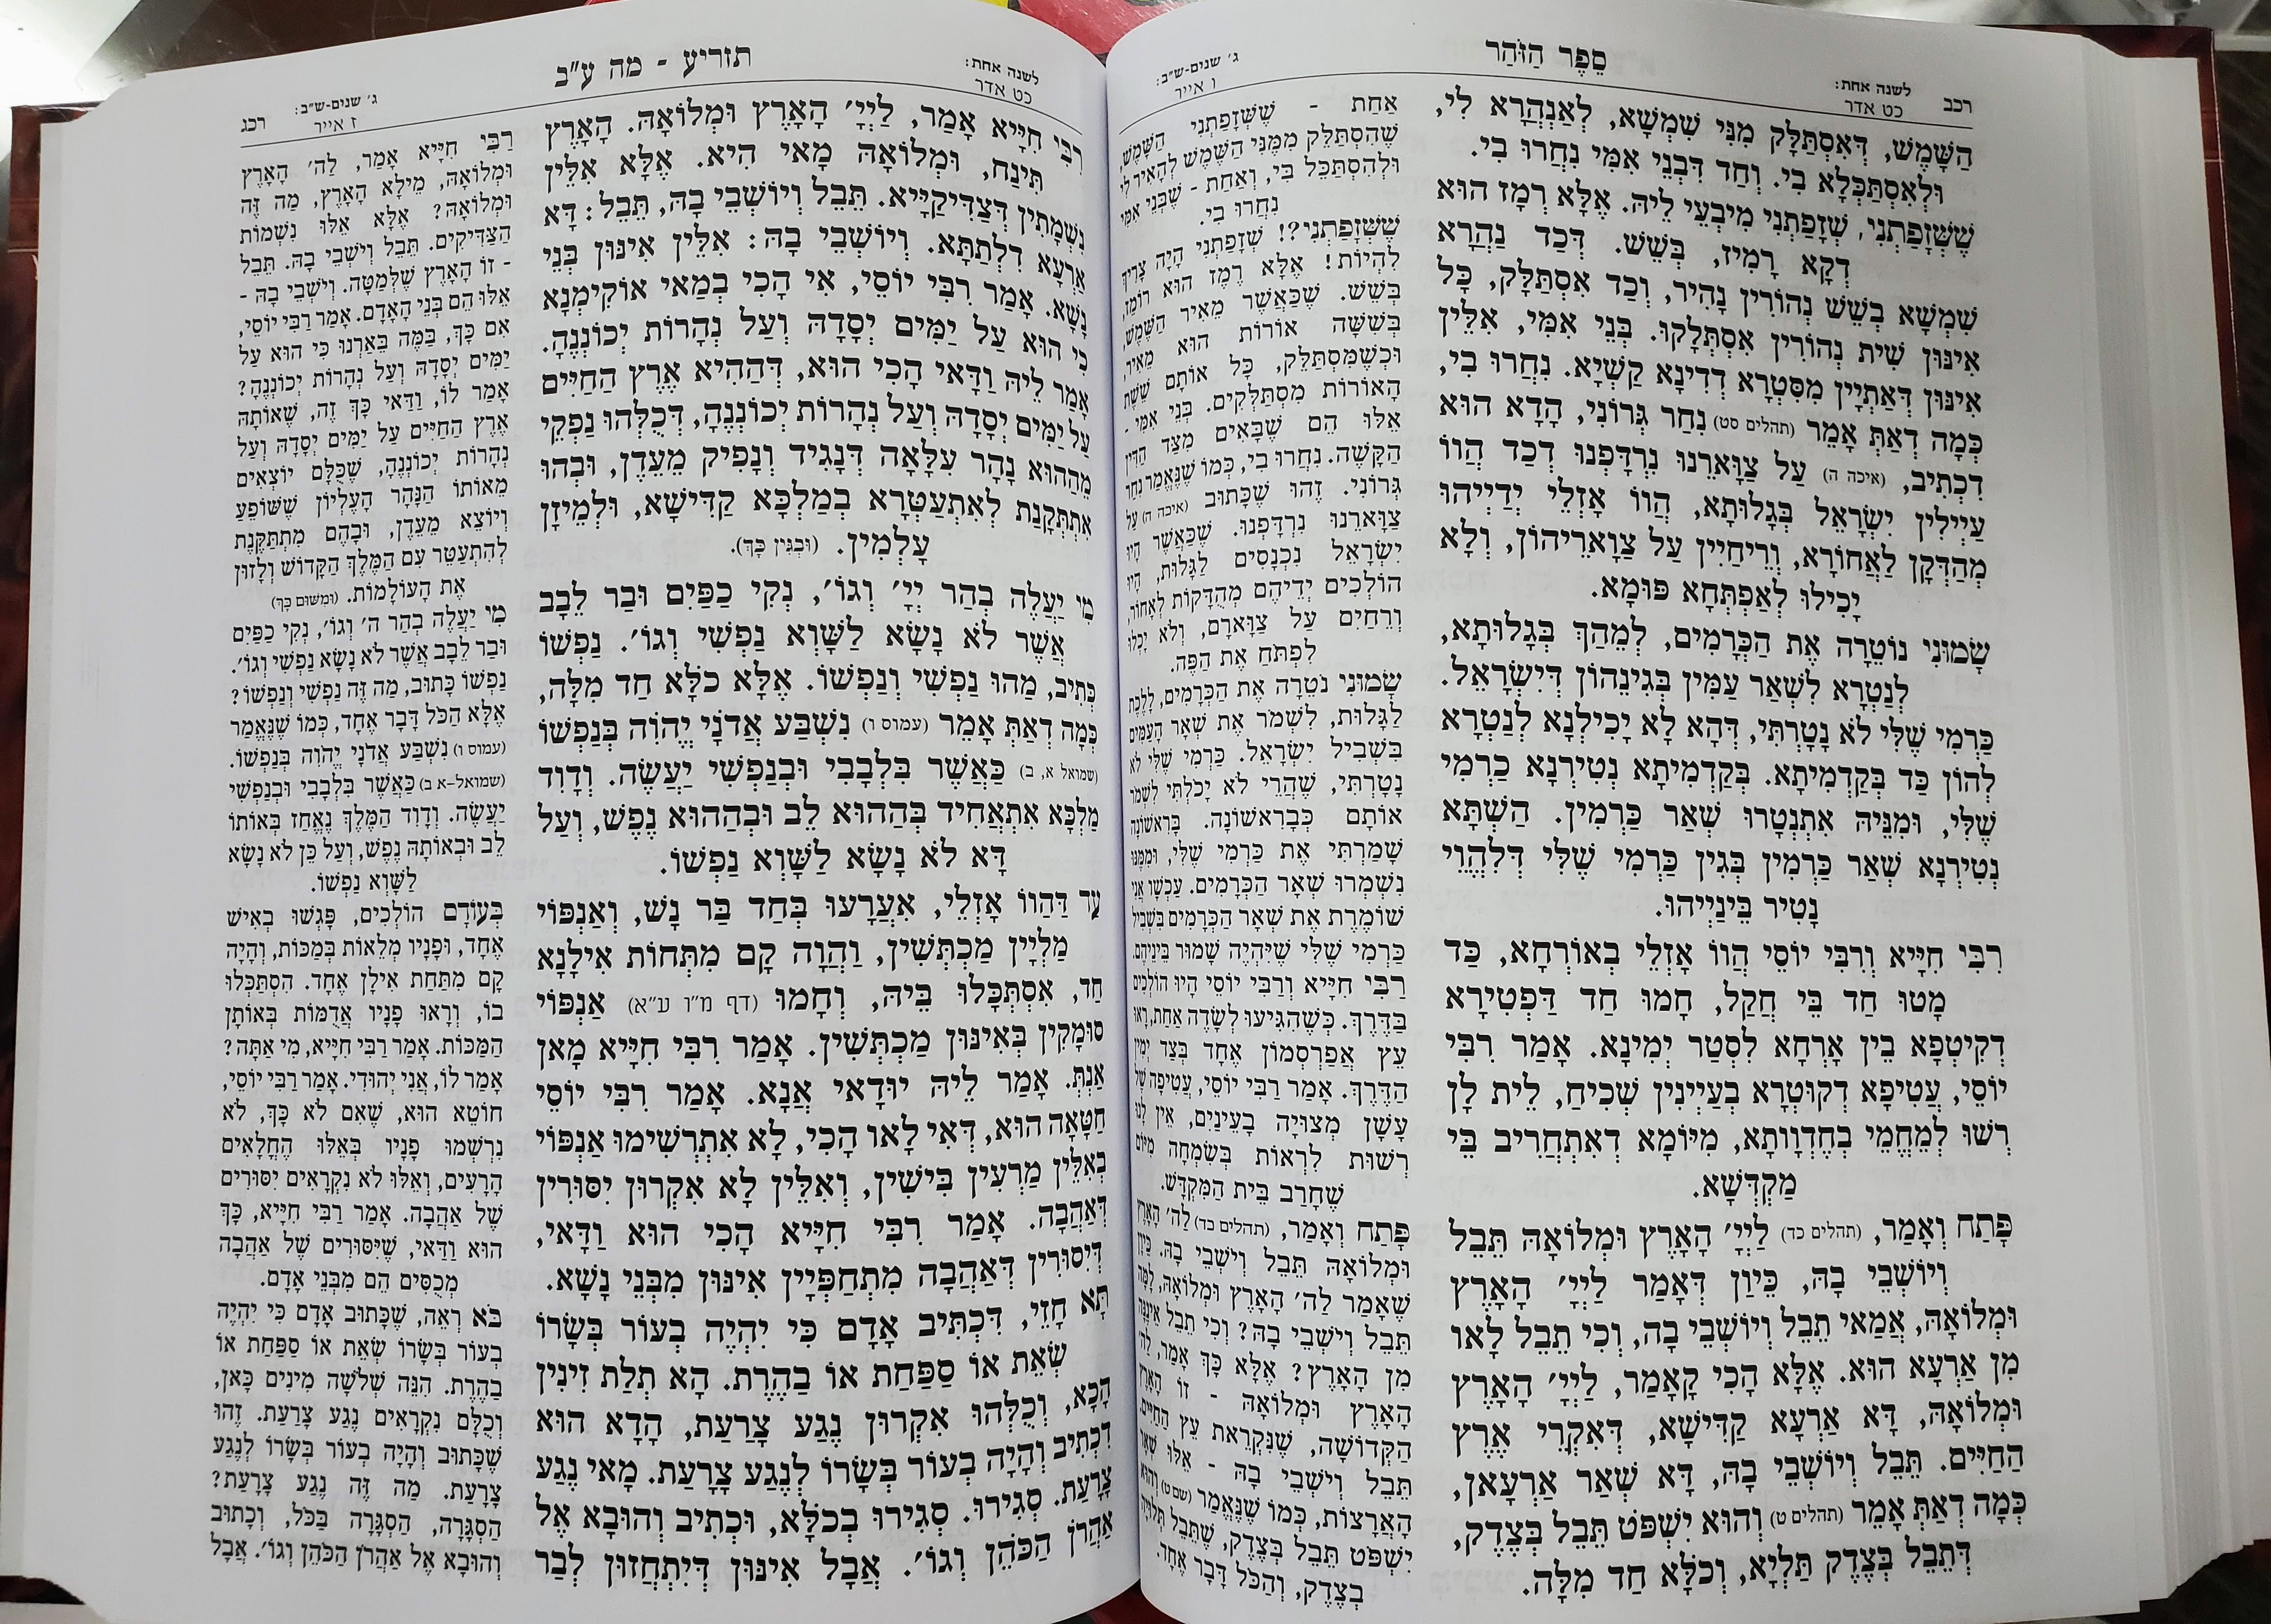 סֵפֶר הַזֹּהַר
רכב
לשנה אחת:
כט אדר
ג׳ שנים-ש״ב:
ו אייר
הַשָּׁמֶשׁ, דְּאִסְתַּלָּק מִנִּי שִׁמְשָׁא, לְאַנְהֲרָא לִי,
וּלְאִסְתַּכְּלָא בִּי. וְחַד דִּבְנֵי אִמִּי נִחֲרוּ בִי.
שֶׁשְּׁזָפַתְנִי, שְׁזָפַתְנִי מִיבְּעֵי לֵיהּ. אֶלָּא רְמָז הוּא
דְקָא רָמִיז, בְּשֵׁשׁ. דְּכַד נַהֲרָא
שִׁמְשָׁא בְּשֵׁשׁ נְהוֹרִין נָהִיר, וְכַד אִסְתַּלָּק, כָּל
אִינּוּן שִׁית נְהוֹרִין אִסְתְּלָקוּ. בְּנֵי אִמִּי, אִלֵּין
אִינּוּן דְּאַתְיָין מִסִּטְרָא דְדִינָא קַשְׁיָא. נִחֲרוּ בִי,
כְּמָה דְאַתְּ אָמֵר (תהלים סט) נִחַר גְּרוֹנִי, הָדָא הוּא
דִכְתִיב, (איכה ה) עַל צַוָּארֵנוּ נִרְדָּפְנוּ דְּכַד הֲווֹ
עַיְילִין יִשְׂרָאֵל בְּגָלוּתָא, הֲווֹ אָזְלֵי יְדַיְיהוּ
מְהַדְּקָן לַאֲחוֹרָא, וְרֵיחַיִין עַל צַוָּארֵיהוֹן, וְלָא
יָכִילוּ לְאַפְתְּחָא פּוּמָא.
שָׂמוּנִי נוֹטֵרָה אֶת הַכְּרָמִים, לְמֵהַךְ בְּגָלוּתָא,
לְנַטְרָא לִשְׁאַר עַמִּין בְּגִינְהוֹן דְּיִשְׂרָאֵל.
כַּרְמִי שֶׁלִּי לֹא נָטָרְתִּי, דְּהָא לָא יָכִילְנָא לְנַטְרָא
לְהוֹן כַּד בְּקַדְמִיתָא. בְּקַדְמִיתָא נְטִירְנָא כַּרְמִי
שֶׁלִּי, וּמִנֵּיהּ אִתְנְטָרוּ שְׁאַר כַּרְמִין. הַשְׁתָּא
נְטִירְנָא שְׁאַר כַּרְמִין בְּגִין כַּרְמִי שֶׁלִּי דְּלֶהֱוֵי
נָטִיר בֵּינַיְיהוּ.
רִבִּי חִיָּיא וְרִבִּי יוֹסֵי הֲווֹ אָזְלֵי בְאוֹרְחָא, כַּד
מָטוּ חַד בֵּי חֲקַל, חָמוּ חַד דַּפְטִירָא
דְקִיטְפָא בֵּין אָרְחָא לִסְטַר יְמִינָא. אָמַר רִבִּי
יוֹסֵי, עֲטִיפָא דְקוּטְרָא בְּעַיְינִין שְׁכִיחַ, לֵית לָן
רְשׁוּ לְמֶחֱמֵי בְּחֶדְוָותָא, מִיּוֹמָא דְאִתְחֲרִיב בֵּי
מַקְדְּשָׁא.
פָּתַח וְאָמַר, (תהלים כד) לַיְיָ׳ הָאָרֶץ וּמְלוֹאָהּ תֵּבֵל
וְיוֹשְׁבֵי בָהּ, כֵּיוָן דְּאָמַר לַיְיָ׳ הָאָרֶץ
וּמְלוֹאָהּ, אֲמַאי תֵּבֵל וְיוֹשְׁבֵי בָהּ, וְכִי תֵבֵל לָאו
מִן אַרְעָא הוּא. אֶלָּא הָכִי קָאָמַר, לַיְיָ׳ הָאָרֶץ
וּמְלוֹאָהּ, דָּא אַרְעָא קַדִּישָׁא, דְּאִקְרֵי אֶרֶץ
הַחַיִּים. תֵּבֵל וְיוֹשְׁבֵי בָהּ, דָּא שְׁאַר אַרְעָאן,
כְּמָה דְאַתְּ אָמֵר (תהלים ט) וְהוּא יִשְׁפֹּט תֵּבֵל בְּצֶדֶק,
דְּתֵבֵל בְּצֶדֶק תַּלְיָא, וְכֹלָּא חַד מִלָּה.
אַחַת - שֶׁשְּׁזָפַתְנִי הַשָּׁמֶשׁ,
שֶׁהִסְתַּלֵּק מִמֶּנִּי הַשֶּׁמֶשׁ לְהָאִיר לִי
וּלְהִסְתַּכֵּל בִּי, וְאַחַת - שֶׁבְּנֵי אִמִּי
נִחֲרוּ בִי.
שֶׁשְּׁזָפַתְנִי?! שְׁזָפַתְנִי הָיָה צָרִיךְ
לִהְיוֹת! אֶלָּא רֶמֶז הוּא רוֹמֵז,
בְּשֵׁשׁ. שֶׁכַּאֲשֶׁר מֵאִיר הַשֶּׁמֶשׁ,
בְּשִׁשָּׁה אוֹרוֹת הוּא מֵאִיר,
וּכְשֶׁמִּסְתַּלֵּק, כָּל אוֹתָם שֵׁשֶׁת
הָאוֹרוֹת מִסְתַּלְּקִים. בְּנֵי אִמִּי -
אֵלּוּ הֵם שֶׁבָּאִים מִצַּד הַדִּין
הַקָּשֶׁה. נִחֲרוּ בִי, כְּמוֹ שֶׁנֶּאֱמַר נִחַר
גְּרוֹנִי. זֶהוּ שֶׁכָּתוּב (איכה ה) עַל
צַוָּארֵנוּ נִרְדָּפְנוּ. שֶׁכַּאֲשֶׁר הָיוּ
יִשְׂרָאֵל נִכְנָסִים לַגָּלוּת, הָיוּ
הוֹלְכִים יְדֵיהֶם מְהֻדָּקוֹת לְאָחוֹר,
וְרֵחַיִם עַל צַוָּארָם, וְלֹא יָכְלוּ
לִפְתֹּחַ אֶת הַפֶּה.
שָׂמוּנִי נֹטֵרָה אֶת הַכְּרָמִים, לָלֶכֶת
לַגָּלוּת, לִשְׁמֹר אֶת שְׁאָר הָעַמִּים
בִּשְׁבִיל יִשְׂרָאֵל. כַּרְמִי שֶׁלִּי לֹא
נָטָרְתִּי, שֶׁהֲרֵי לֹא יָכֹלְתִּי לִשְׁמֹר
אוֹתָם כְּבָרִאשׁוֹנָה. בָּרִאשׁוֹנָה
שָׁמַרְתִּי אֶת כַּרְמִי שֶׁלִּי, וּמִמֶּנּוּ
נִשְׁמְרוּ שְׁאָר הַכְּרָמִים. עַכְשָׁו אֲנִי
שׁוֹמֶרֶת אֶת שְׁאָר הַכְּרָמִים בִּשְׁבִיל
כַּרְמִי שֶׁלִּי שֶׁיִּהְיֶה שָׁמוּר בֵּינֵיהֶם.
רַבִּי חִיָּיא וְרַבִּי יוֹסֵי הָיוּ הוֹלְכִים
בַּדֶּרֶךְ. כְּשֶׁהִגִּיעוּ לְשָׂדֶה אַחַת, רָאוּ
עֵץ אֲפַרְסְמוֹן אֶחָד בְּצַד יְמִין
הַדֶּרֶךְ. אָמַר רַבִּי יוֹסֵי, עֲטִיפָה שֶׁל
עָשָׁן מְצוּיָה בָעֵינַיִם, אֵין לָנוּ
רְשׁוּת לִרְאוֹת בְּשִׂמְחָה מִיּוֹם
שֶׁחָרַב בֵּית הַמִּקְדָּשׁ.
פָּתַח וְאָמַר, (תהלים כד) לַה׳ הָאָרֶץ
וּמְלוֹאָהּ תֵּבֵל וְיֹשְׁבֵי בָהּ. כֵּיוָן
שֶׁאָמַר לַה׳ הָאָרֶץ וּמְלוֹאָהּ, לָמָּה
תֵּבֵל וְיֹשְׁבֵי בָהּ? וְכִי תֵבֵל אֵינָהּ
מִן הָאָרֶץ? אֶלָּא כָּךְ אָמַר, לַה׳
הָאָרֶץ וּמְלוֹאָהּ - זוֹ הָאָרֶץ
הַקְּדוֹשָׁה, שֶׁנִּקְרֵאת עֵץ הַחַיִּים.
תֵּבֵל וְיֹשְׁבֵי בָהּ - אֵלּוּ שְׁאָר
הָאֲרָצוֹת, כְּמוֹ שֶׁנֶּאֱמַר (שם ט) וְהוּא
יִשְׁפֹּט תֵּבֵל בְּצֶדֶק, שֶׁתֵּבֵל תְּלוּיָה
בְצֶדֶק, וְהַכֹּל דָּבָר אֶחָד.
תזריע - מה ע״ב
לשנה אחת:
כט אדר
ג׳ שנים-ש״ב:
ז אייר
רכג
רִבִּי חִיָּיא אָמַר, לַיְיָ׳ הָאָרֶץ וּמְלוֹאָהּ. הָאָרֶץ
תִּינַח, וּמְלוֹאָהּ מָאי הִיא. אֶלָּא אִלֵּין
נִשְׁמָתִין דְּצַדִּיקַיָּיא. תֵּבֵל וְיוֹשְׁבֵי בָהּ, תֵּבֵל: דָּא
אַרְעָא דִלְתַתָּא. וְיוֹשְׁבֵי בָהּ: אִלֵּין אִינּוּן בְּנֵי
נָשָׁא. אָמַר רִבִּי יוֹסֵי, אִי הָכִי בְּמַאי אוֹקִימְנָא
כִּי הוּא עַל יַמִּים יְסָדָהּ וְעַל נְהָרוֹת יְכוֹנְנֶהָ.
אָמַר לֵיהּ וַדַּאי הָכִי הוּא, דְּהַהִיא אֶרֶץ הַחַיִּים
עַל יַמִּים יְסָדָהּ וְעַל נְהָרוֹת יְכוֹנְנֶהָ, דְּכֻלְּהוּ נַפְקֵי
מֵהַהוּא נָהָר עִלָּאָה דְּנָגִיד וְנָפִיק מֵעֵדֶן, וּבְהוּ
אִתְתְּקָנַת לְאִתְעַטְּרָא בְּמַלְכָּא קַדִּישָׁא, וּלְמֵיזָן
עָלְמִין. (וּבְגִין כָּךְ).
מִי יַעֲלֶה בְהַר יְיָ׳ וְגוֹ׳, נְקִי כַפַּיִם וּבַר לֵבָב
אֲשֶׁר לֹא נָשָׂא לַשָּׁוְא נַפְשִׁי וְגוֹ׳. נַפְשׁוֹ
כְּתִיב, מַהוּ נַפְשִׁי וְנַפְשׁוֹ. אֶלָּא כֹלָּא חַד מִלָּה,
כְּמָה דְאַתְּ אָמֵר (עמוס ו) נִשְׁבַּע אֲדֹנָי יֱהֹוִה בְּנַפְשׁוֹ
(שמואל א, ב) כַּאֲשֶׁר בִּלְבָבִי וּבְנַפְשִׁי יַעֲשֶׂה. וְדָוִד
מַלְכָּא אִתְאֲחִיד בְּהַהוּא לֵב וּבְהַהוּא נֶפֶשׁ, וְעַל
דָּא לֹא נָשָׂא לַשָּׁוְא נַפְשׁוֹ.
עַד דַּהֲווֹ אָזְלֵי, אִעֲרָעוּ בְּחַד בַּר נָשׁ, וְאַנְפּוֹי
מַלְיָין מַכְתְּשִׁין, וַהֲוָה קָם מִתְּחוֹת אִילָנָא
חַד, אִסְתַּכָּלוּ בֵּיהּ, וְחָמוּ (דף מ״ו ע״א) אַנְפּוֹי
סוּמָקִין בְּאִינּוּן מַכְתְּשִׁין. אָמַר רִבִּי חִיָּיא מָאן
אַנְתְּ. אָמַר לֵיהּ יוּדָאי אֲנָא. אָמַר רִבִּי יוֹסֵי
חַטָּאָה הוּא, דְּאִי לָאו הָכִי, לָא אִתְרְשִׁימוּ אַנְפּוֹי
בְּאִלֵּין מַרְעִין בִּישִׁין, וְאִלֵּין לָא אִקְרוּן יִסּוּרִין
דְּאַהֲבָה. אָמַר רִבִּי חִיָּיא הָכִי הוּא וַדָּאי,
דְּיִסּוּרִין דְּאַהֲבָה מִתְחַפְּיָין אִינּוּן מִבְּנֵי נָשָׁא.
תָּא חָזֵי, דִּכְתִיב אָדָם כִּי יִהְיֶה בְעוֹר בְּשָׂרוֹ
שְׂאֵת אוֹ סַפַּחַת אוֹ בַהֶרֶת. הָא תְלַת זִינִין
הָכָא, וְכֻלְּהוּ אִקְרוּן נֶגַע צָרַעַת, הָדָא הוּא
דִכְתִיב וְהָיָה בְעוֹר בְּשָׂרוֹ לְנֶגַע צָרָעַת. מָאי נֶגַע
צָרָעַת. סְגִירוּ. סְגִירוּ בְכֹלָּא, וּכְתִיב וְהוּבָא אֶל
אַהֲרֹן הַכֹּהֵן וְגוֹ׳. אֲבָל אִינּוּן דְּיִתְחֲזוּן לְבַר
רַבִּי חִיָּיא אָמַר, לַה׳ הָאָרֶץ
וּמְלוֹאָהּ, מֵילָא הָאָרֶץ, מַה זֶּה
וּמְלוֹאָהּ? אֶלָּא אֵלּוּ נִשְׁמוֹת
הַצַּדִּיקִים. תֵּבֵל וְיֹשְׁבֵי בָהּ. תֵּבֵל
- זוֹ הָאָרֶץ שֶׁלְּמַטָּה. וְיֹשְׁבֵי בָהּ -
אֵלּוּ הֵם בְּנֵי הָאָדָם. אָמַר רַבִּי יוֹסֵי,
אִם כָּךְ, בַּמֶּה בֵּאַרְנוּ כִּי הוּא עַל
יַמִּים יְסָדָהּ וְעַל נְהָרוֹת יְכוֹנְנֶהָ?
אָמַר לוֹ, וַדַּאי כָּךְ זֶה, שֶׁאוֹתָהּ
אֶרֶץ הַחַיִּים עַל יַמִּים יְסָדָהּ וְעַל
נְהָרוֹת יְכוֹנְנֶהָ, שֶׁכֻּלָּם יוֹצְאִים
מֵאוֹתוֹ הַנָּהָר הָעֶלְיוֹן שֶׁשּׁוֹפֵעַ
וְיוֹצֵא מֵעֵדֶן, וּבָהֶם מִתְתַּקֶּנֶת
לְהִתְעַטֵּר עִם הַמֶּלֶךְ הַקָּדוֹשׁ וְלָזוּן
אֶת הָעוֹלָמוֹת. (וּמִשּׁוּם כָּךְ)
מִי יַעֲלֶה בְהַר ה׳ וְגוֹ׳, נְקִי כַפַּיִם
וּבַר לֵבָב אֲשֶׁר לֹא נָשָׂא נַפְשִׁי וְגוֹ׳.
נַפְשׁוֹ כָּתוּב, מַה זֶּה נַפְשִׁי וְנַפְשׁוֹ?
אֶלָּא הַכֹּל דָּבָר אֶחָד, כְּמוֹ שֶׁנֶּאֱמַר
(עמוס ו) נִשְׁבַּע אֲדֹנָי יֱהֹוִה בְּנַפְשׁוֹ.
(שמואל-א ב) כַּאֲשֶׁר בִּלְבָבִי וּבְנַפְשִׁי
יַעֲשֶׂה. וְדָוִד הַמֶּלֶךְ נֶאֱחַז בְּאוֹתוֹ
לֵב וּבְאוֹתָהּ נֶפֶשׁ, וְעַל כֵּן לֹא נָשָׂא
לַשָּׁוְא נַפְשׁוֹ.
בְּעוֹדָם הוֹלְכִים, פָּגְשׁוּ בְאִישׁ
אֶחָד, וּפָנָיו מְלֵאוֹת בְּמַכּוֹת, וְהָיָה
קָם מִתַּחַת אִילָן אֶחָד. הִסְתַּכְּלוּ
בוֹ, וְרָאוּ פָנָיו אֲדֻמּוֹת בְּאוֹתָן
הַמַּכּוֹת. אָמַר רַבִּי חִיָּיא, מִי אַתָּה?
אָמַר לוֹ, אֲנִי יְהוּדִי. אָמַר רַבִּי יוֹסֵי,
חוֹטֵא הוּא, שֶׁאִם לֹא כָּךְ, לֹא
נִרְשְׁמוּ פָנָיו בְּאֵלּוּ הֶחֳלָאִים
הָרָעִים, וְאֵלּוּ לֹא נִקְרָאִים יִסּוּרִים
שֶׁל אַהֲבָה. אָמַר רַבִּי חִיָּיא, כָּךְ
הוּא וַדַּאי, שֶׁיִּסּוּרִים שֶׁל אַהֲבָה
מְכֻסִּים הֵם מִבְּנֵי אָדָם.
בֹּא רְאֵה, שֶׁכָּתוּב אָדָם כִּי יִהְיֶה
בְעוֹר בְּשָׂרוֹ שְׂאֵת אוֹ סַפַּחַת אוֹ
בַהֶרֶת. הִנֵּה שְׁלֹשָׁה מִינִים כָּאן,
וְכֻלָּם נִקְרָאִים נֶגַע צָרַעַת. זֶהוּ
שֶׁכָּתוּב וְהָיָה בְעוֹר בְּשָׂרוֹ לְנֶגַע
צָרָעַת. מַה זֶּה נֶגַע צָרָעַת?
הַסְגָּרָה, הַסְגָּרָה בַּכֹּל, וְכָתוּב
וְהוּבָא אֶל אַהֲרֹן הַכֹּהֵן וְגוֹ׳. אֲבָל